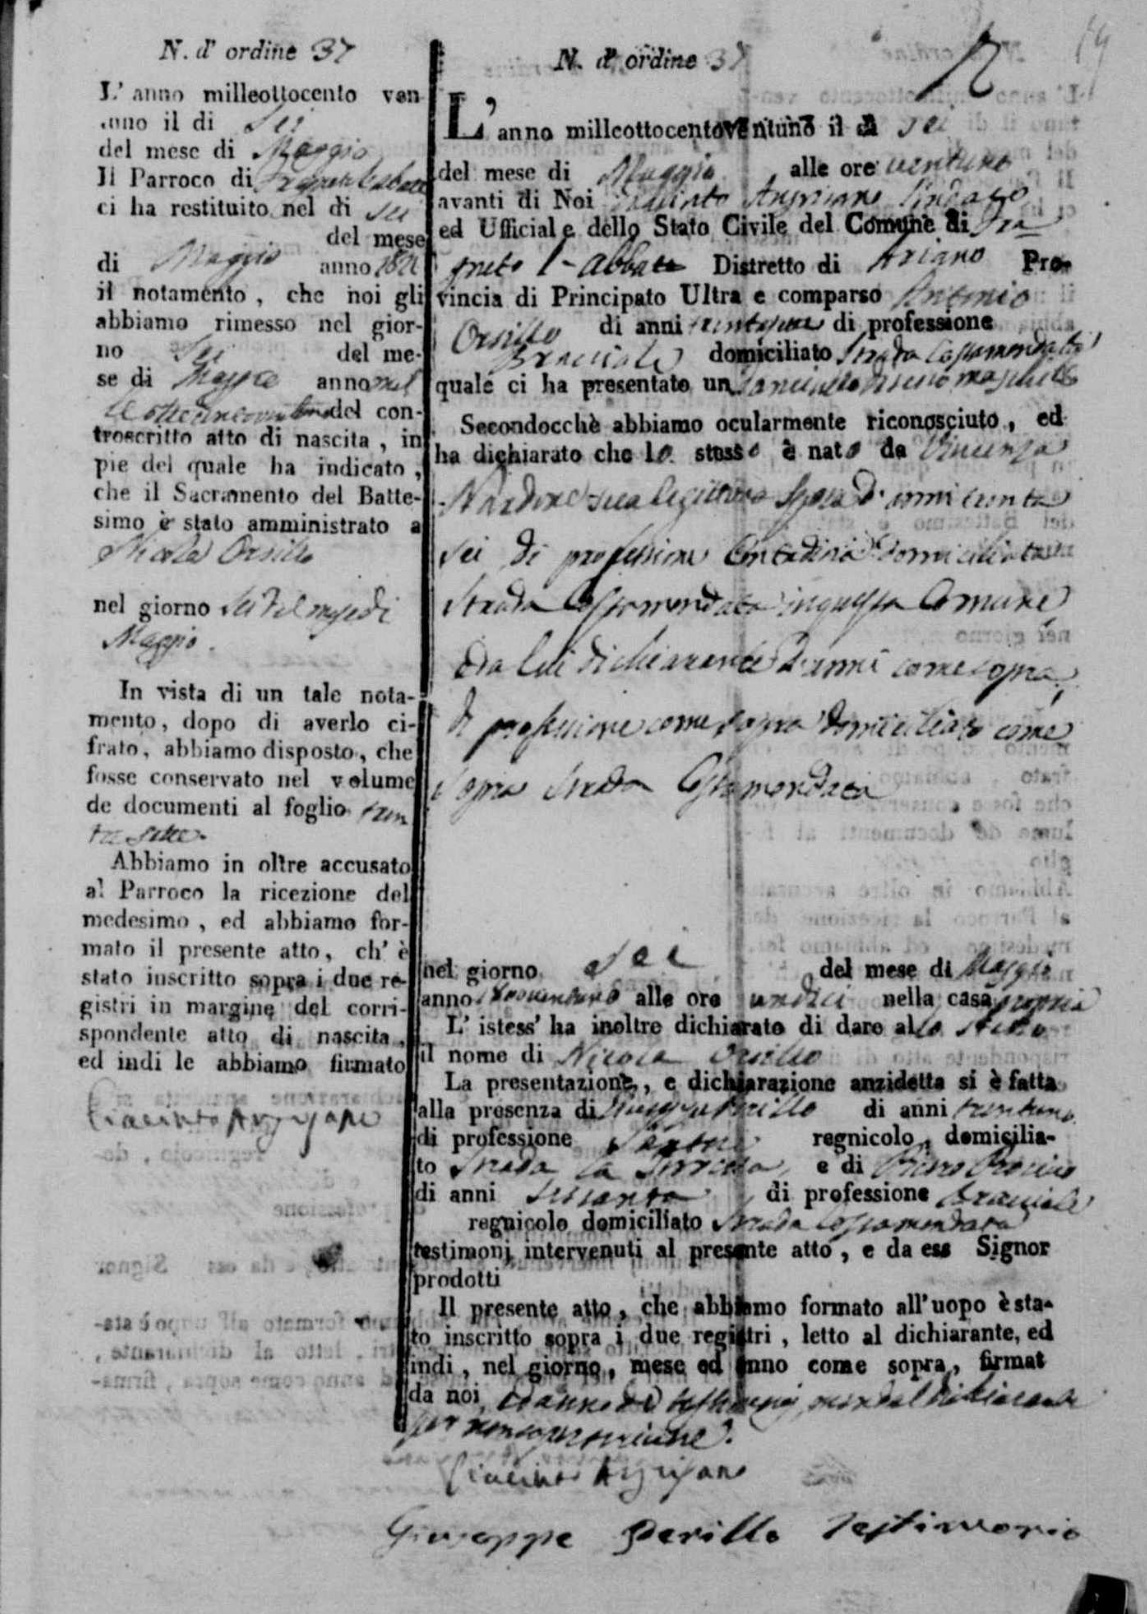 N. d' ordine 37
L' anno milleottocento ven
uno il di Sei
del mese di Maggio
Il Parroco di Fragneto l'abate
ci ha restituito nel di sei
del mese
di Maggio anno 1821
il notamento , che noi gli
abbiamo rimesso nel gior-
no Sei del me-
se di Maggio anno mil
le ottocentoventuno del con-
troscritto atto di nascita , in
pie del quale ha indicato ,
che il Sacramento del Batte-
simo è stato amministrato a
Nicola Orsillo
nel giorno Sei del mese di
Maggio .
In vista di un tale nota-
mento, dopo di averlo ci-
frato, abbiamo disposto, che
fosse conservato nel volume
de documenti al foglio tren
ta sette
Abbiamo in oltre accusato
al Parroco la ricezione del
medesimo , ed abbiamo for-
mato il presente atto, ch' è
stato inscritto sopra i due re-
gistri in margine del corri-
spondente atto di nascita ,
ed indi le abbiamo firmato
Giacinto
N. d' ordine 37
L' anno milleottocentoventuno il di sei
del mese di Maggio alle ore ventuno
avanti di Noi Giacinto Sindaco
ed Ufficiale dello Stato Civile del Comune di Fra
gneto l'abbate Distretto di Ariano Pro-
vincia di Principato Ultra e comparso Antonio
Orsillo di anni di professione
Bracciale domiciliato Strada Costamondata
quale ci ha presentato un fanciullo di sesso maschile
Secondocchè abbiamo ocularmente riconosciuto , ed
ha dichiarato che lo stesso è nato da Vincenza
Nardone sua legittima Sposa d'anni trenta
sei di professione Contadina domiciliata
Strada Costamondata in questa Comune
e da lui dichiarante d'anni come sopra ,
di professione come sopra domiciliato come
sopra Strada Costamondata
nel giorno sei del mese di Maggio
anno alle ore undici nella casa propria
L' istess' ha inoltre dichiarato di dare allo stesso
il nome di Nicola Orsillo
La presentazione , e dichiarazione anzidetta si è fatta
alla presenza di Giuseppe Perillo di anni trentuno
di professione Sartore regnicolo , domicilia-
to Strada la e di
di anni sessanta di professione Bracciale
regnicolo domiciliato Strada Costamondata
testimonj intervenuti al presente atto , e da ess Signor
prodotti
Il presente atto , che abbiamo formato all' uopo è sta-
to inscritto sopra i due registri , letto al dichiarante, ed
indi , nel giorno , mese ed anno come sopra , firmat
da noi , testimonj non dal dichiarante
per non saper scrivere .
Giacinto
Giuseppe Perillo Testimonio